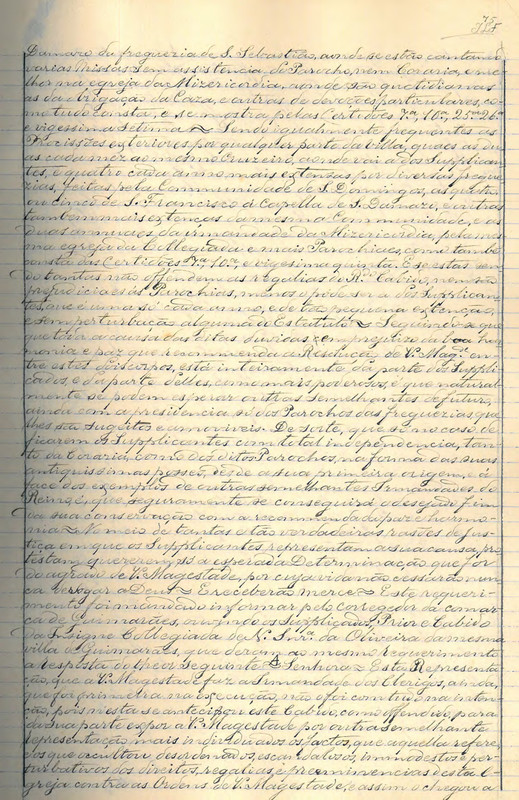 Damazo da freguezia de S. Sebastião, aonde se estão cantando
varias Missas sem assistencia do Parocho, nem Coraria, e me-
lhor na egreja da Mizericordia, aonde são quotidianas
as da obrigação da Caza, e outras de devoções particulares, co-
mo tudo consta, e se mostra pelas Certidões 7ª, 10ª, 25ª 26ª
e vigesima setima ~ Sendo igualmente frequentes as
Procissões exteriores por qualquer parte da villa, quaes as du-
as cada mez ao mesmo Cruzeiro, aonde vai a dos Supplican-
tes, e quatro cada anno mais extensas por diversas fregue-
zias, feitas pela Communidade de S. Domingos, as quatro
ou cinco de S. Francisco á Capella de S. Damazo, e outras
tambem mais extenças da mesma Communidade, e as
duas annuaes da irmandade da Mizericordia, pela mes-
ma egreja da Collegiada e mais Parochiaes, como tambem
consta das Certidões 7ª, 10ª, e vigesima quinta. E se estas sen-
do tantas não offendem as regalias do Rdo Cabido, nem são
prejudiciaes ás Parochias, menos o pode ser a dos Supplican-
tes, que é uma só cada anno, e de tão pequena extenção,
e sem perturbação alguma do Estatuto ~ Seguindo-se que
que toda a causa das ditas duvidas, em prejuizo da boa har-
monia e paz que recommenda a Resolução de V. Mage. en-
tre estes dois corpos, está inteiramente da parte dos Suppli-
cados, e da parte delles, como mais poderosos, é que natural-
mente se podem esperar outras semelhantes de futuro,
ainda com a presidencia só dos Parochos das freguezias, que
lhes são sugeitos e amoviveis. De sorte, que só no caso de
ficarem os Supplicantes com total independencia, tan-
to da Coraria, como dos ditos Parochos, na forma das suas
antiquissimas posses, desde a sua primeira origem, e á
face dos exemplos de outras semelhantes Irmandades do
Reino, é que seguramente se conseguirá o desejado fim
de sua conservação com a recommendada paz e harmo-
nia ~ No meio de tantas e tão verdadeiras rasões de jus-
tiça em que os Supplicantes representam a sua causa, pro-
testam quererem só a esperada Determinação que for
do agrado de V. Magestade, por cuja vida não cessarão nun-
ca de rogar a Deus ~ E receberão merce ~ Este requeri-
mento foi mandado informar pelo Corregedor da comar-
ca de Guimarães, ouvindo os Supplicados, Prior e Cabido
da Insigne Collegiada de N. Snra. da Oliveira da mesma
villa de Guimarães, que deram ao mesmo Requerimento
a Resposta do theor Seguinte ~ Senhora ~ Esta Representa-
ção, que a V. Magestade faz a Irmandade dos Clerigos, ainda
que foi primeira na execução, não o foi comtudo na inten-
ção, pois n'esta se antecipou este Cabido, como offendido, para
da sua parte expor a V. Magestade por outra semelhante
representação, mais individuados os factos, que aquella refere,
e os que occultou desordenados, escandalosos, immodestos e per-
turbativos dos direitos, regalias, e preeminencias desta E-
greja contra as Ordens de V. Magestade, e assim o chegou a